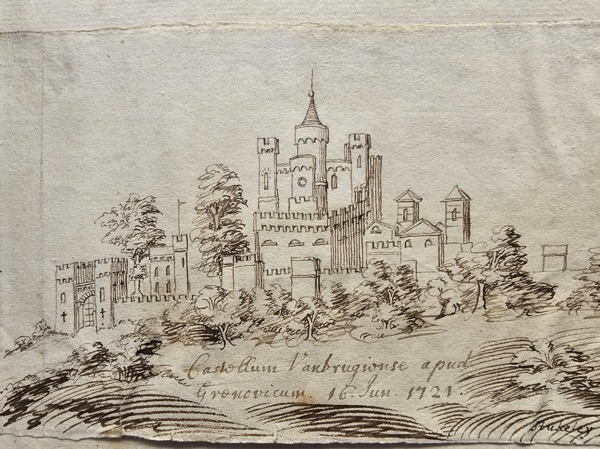 Castellum Vanbrugiense apud
Grenovicum. 16. Jun. 1721.
Stukeley